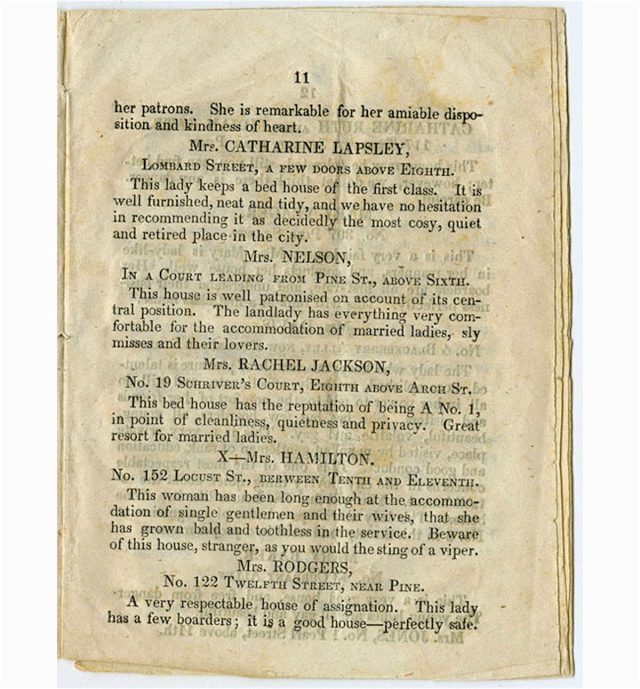 11
her patrons. She is remarkable for her amiable dispo-
sition and kindness of heart.
Mrs. CATHARINE LAPSLEY,
LOMBARD STREET, A FEW DOORS ABOVE EIGHTH.
This lady keeps a bed house of the first class. It is
well furnished, neat and tidy, and we have no hesitation
in recommending it as decidedly the most cosy, quiet
and retired place in the city.
Mrs. NELSON,
IN A COURT LEADING FROM PINE ST., ABOVE SIXTH.
This house is well patronised on account of its cen-
tral position. The landlady has everything very com-
fortable for the accommodation of married ladies, sly
misses and their lovers.
Mrs. RACHEL JACKSON,
No. 19 SCHRIVER'S COURT, EIGHTH ABOVE ARCH ST.
This bed house has the reputation of being A No. 1,
in point of cleanliness, quietness and privacy. Great
resort for married ladies.
X—Mrs. HAMILTON.
No. 152 LOCUST ST., BERWEEN TENTH AND ELEVENTH.
This woman has been long enough at the accommo-
dation of single gentlemen and their wives, that she
has grown bald and toothless in the service. Beware
of this house, stranger, as you would the sting of a viper.
Mrs. RODGERS,
No. 122 TWELFTH STREET, NEAR PINE.
A very respectable house of assignation. This lady
has a few boarders; it is a good house—perfectly safe.